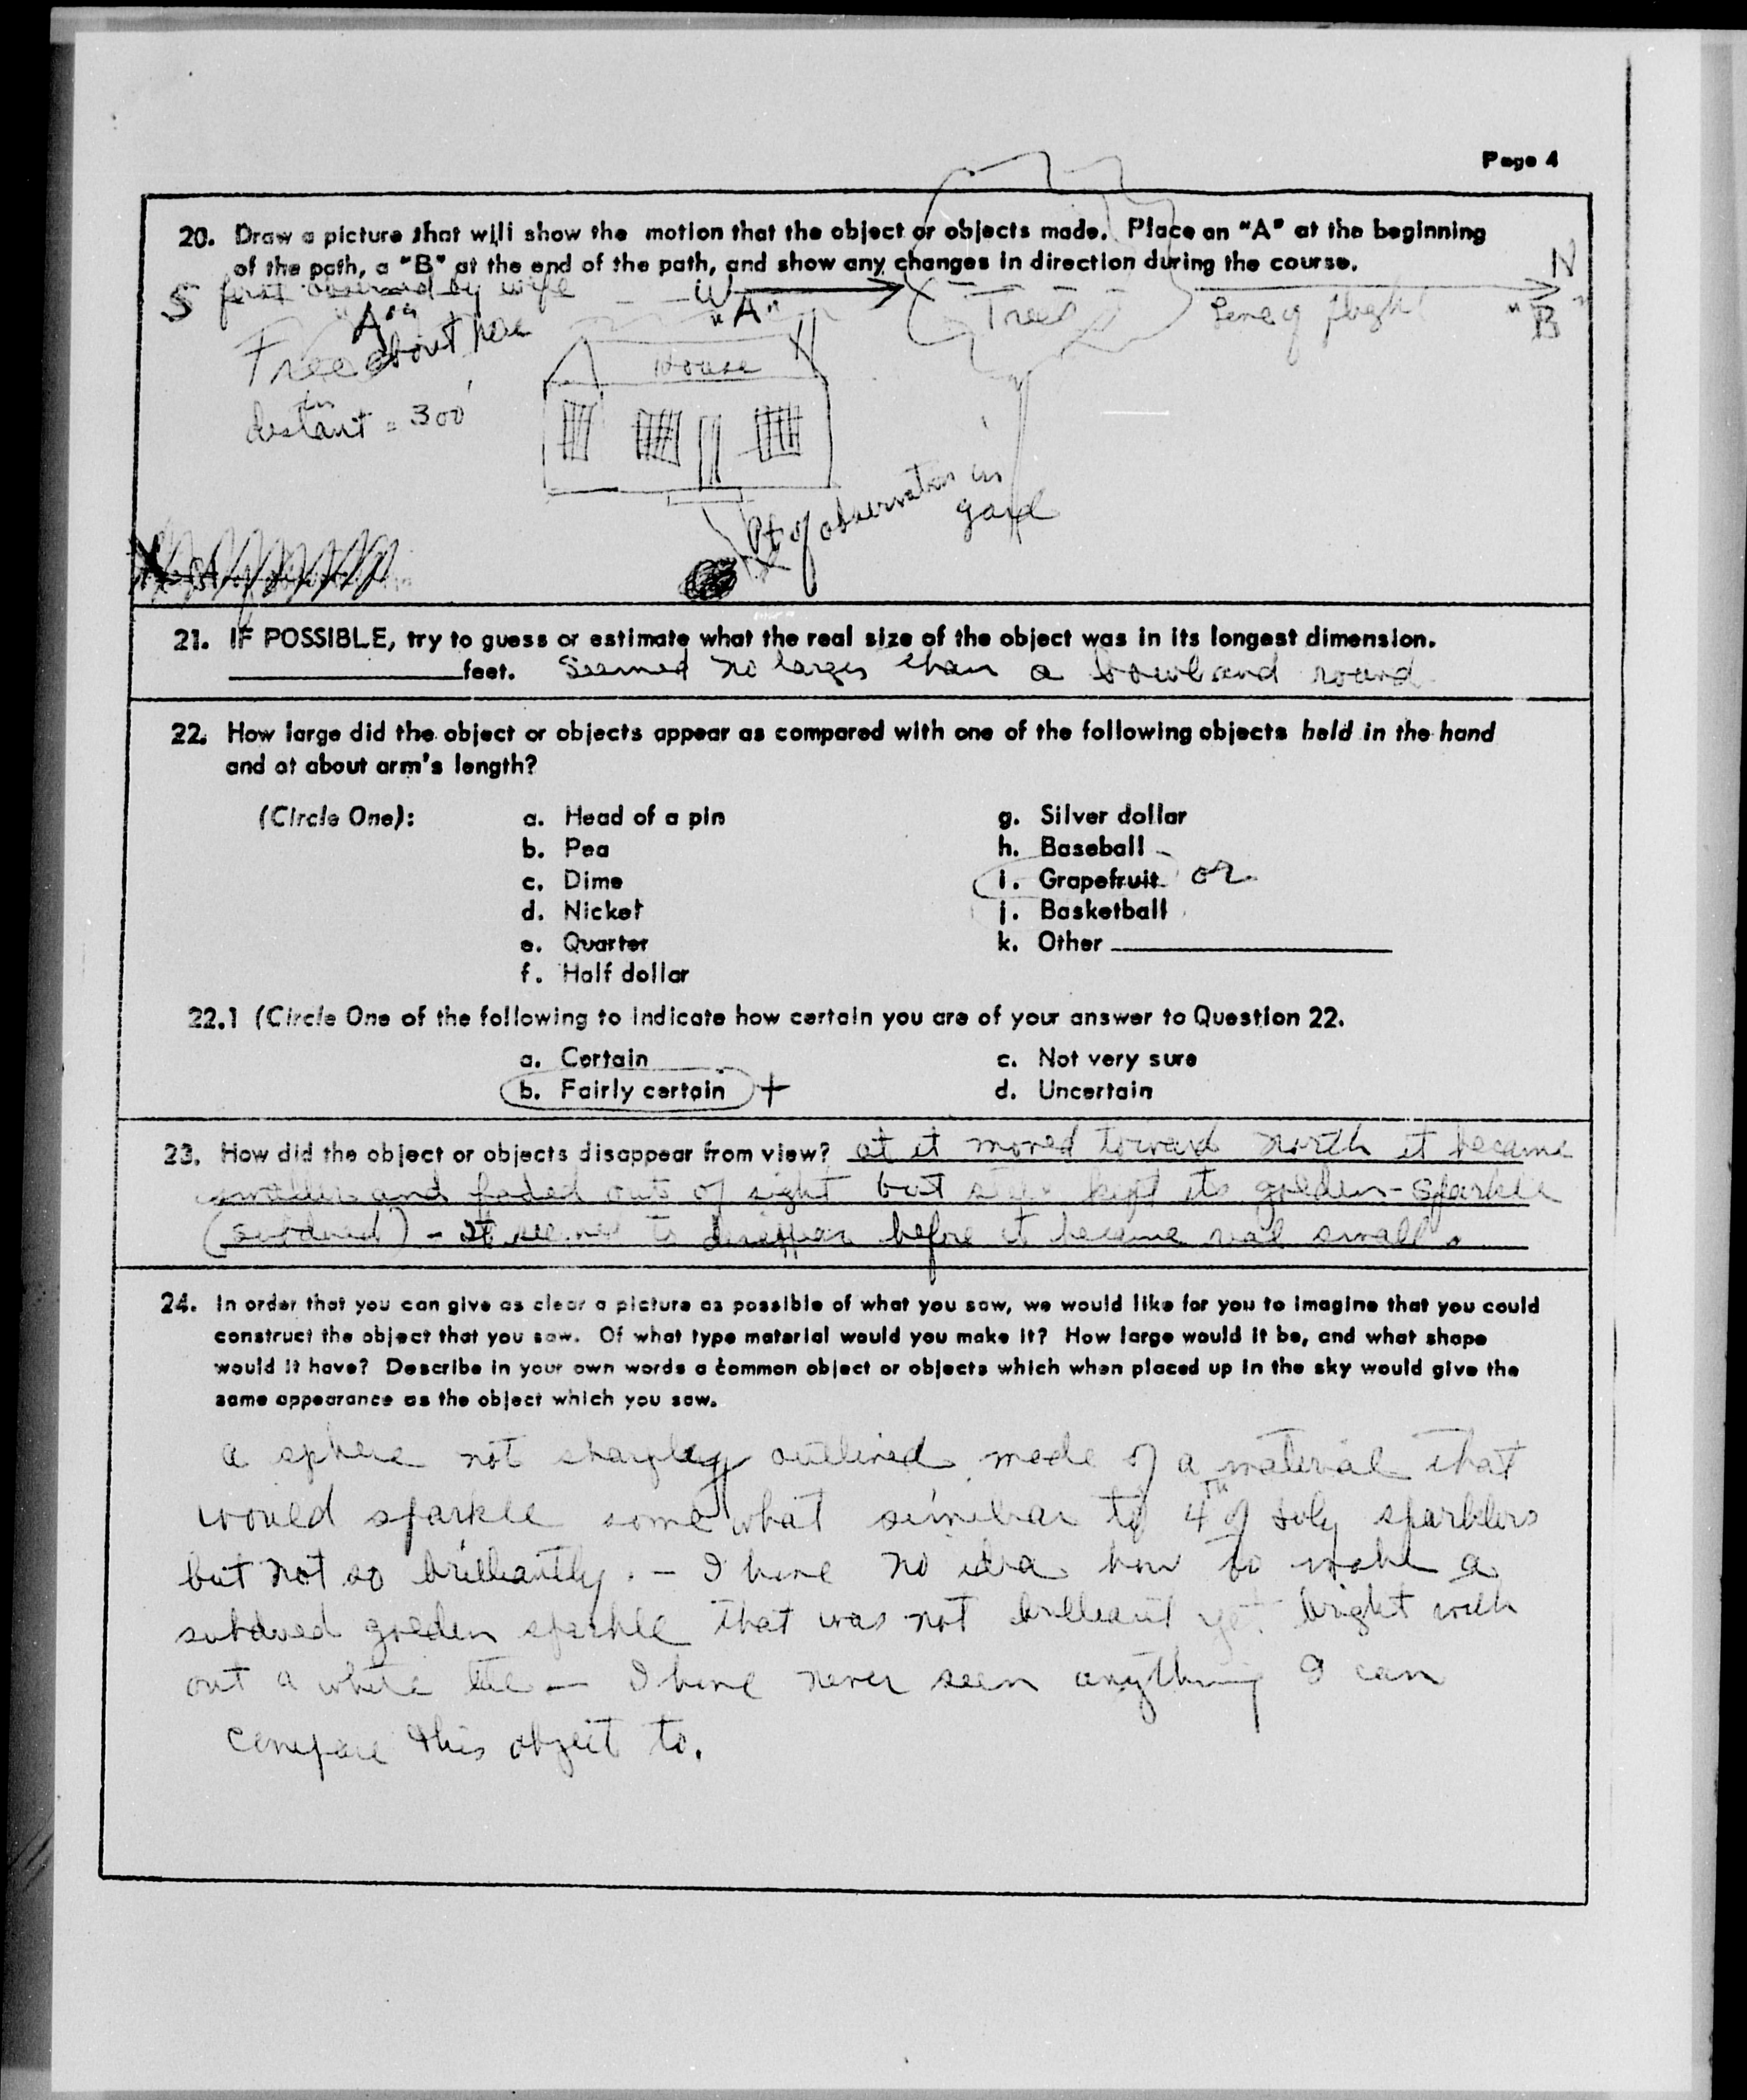 Page 4
20. Draw a picture that will show the motion that the object or objects made. Place an "A" at the beginning
of the path, a "B" at the end of the path, and show any changes in direction during the course.
S first observed by wife W N
"A" "A" Trees Line of flight "B"
about here
House
distant = 300'
Pt of observation in
yard
21. IF POSSIBLE, try to guess or estimate what the real size of the object was in its longest dimension.
feet. Seemed no larger than a bowl and round
22. How large did the object or objects appear as compared with one of the following objects held in the hand
and at about arm's length?
(Circle One): a. Head of a pin g. Silver dollar
b. Pea h. Baseball
c. Dime i. Grapefruit or
d. Nickel j. Basketball
e. Quarter k. Other
f. Half dollar
22.1 (Circle One of the following to indicate how certain you are of your answer to Question 22.
a. Certain c. Not very sure
b. Fairly certain + d. Uncertain
23. How did the object or objects disappear from view? at it moved toward north it became
smaller and faded out of sight but kept its golden-sparkle
(subdued) - it seemed to disappear before it became real small.
24. In order that you can give as clear a picture as possible of what you saw, we would like for you to imagine that you could
construct the object that you saw. Of what type material would you make it? How large would it be, and what shape
would it have? Describe in your own words a common object or objects which when placed up in the sky would give the
same appearance as the object which you saw.
a sphere not sharply outlined made of a material that
would sparkle somewhat similar to 4th of July sparklers
but not so brilliantly. - I have no idea how to make a
subdued golden sparkle that was not brilliant yet bright with
out a white - I have never seen anything I can
compare this object to.